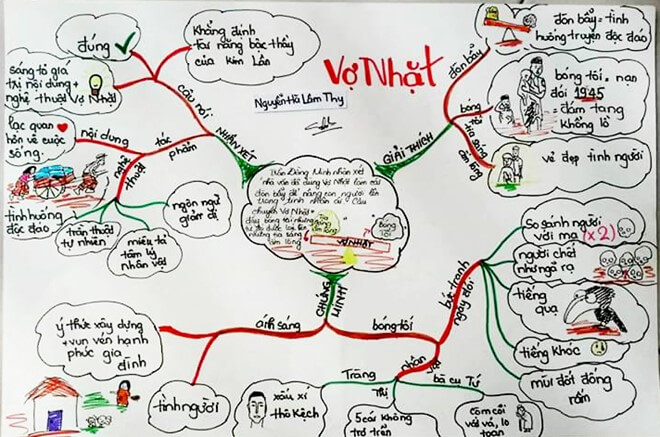 Vợ Nhặt
Nguyễn Hà Lâm Thy
đúng
Khẳng định
tài năng bậc thầy
của Kim Lân
sáng tỏ giá
trị nội dung +
nghệ thuật Vợ Nhặt
câu nói
NHẬN XÉT
tác
phẩm
nội dung
nghệ
thuật
lạc quan
hơn về cuộc
sống.
tình huống
độc đáo
trần thuật
tự nhiên
miêu tả
tâm lý
nhân vật
ngôn ngữ
giản dị
GIẢI THÍCH
đòn bẩy
đòn bẩy = tình
huống truyện độc đáo
bóng
tối
bóng tối = nạn
đói 1945
= đám tang
khổng lồ
ánh sáng
vẻ đẹp tình người
Trần Đăng Minh nhận xét
nhà văn đã dùng Vợ Nhặt làm cái
đòn bẩy để nâng con người lên
trong tình nhân ái. Câu
chuyện Vợ Nhặt
đầy bóng tối nhưng
những tia sáng
tấm lòng
Bóng
tối
VỢ NHẶT
CHỨNG
MINH
ánh sáng
ý thức xây dựng
+ vun vén hạnh
phúc gia
đình
tình người
bóng tối
bức tranh
ngày đói
So sánh người
với ma (x2)
người chết
như ngả rạ
tiếng
quạ
tiếng khóc
mùi đốt đống
rấm
nhân
vật
Tràng
xấu xí
thô kệch
Thị
5 cái không
trơ trẽn
bà cụ Tứ
Còm cõi
vất vả, lo toan